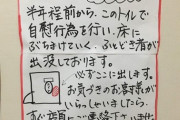 半年程前から、このトイレで
自慰行為を行い、床に
ぶちまけていく、ふとどき者が
出没しております。
必ずここに出します。
お気づきのお客様が
いらっしゃいましたら、
すぐ店員に